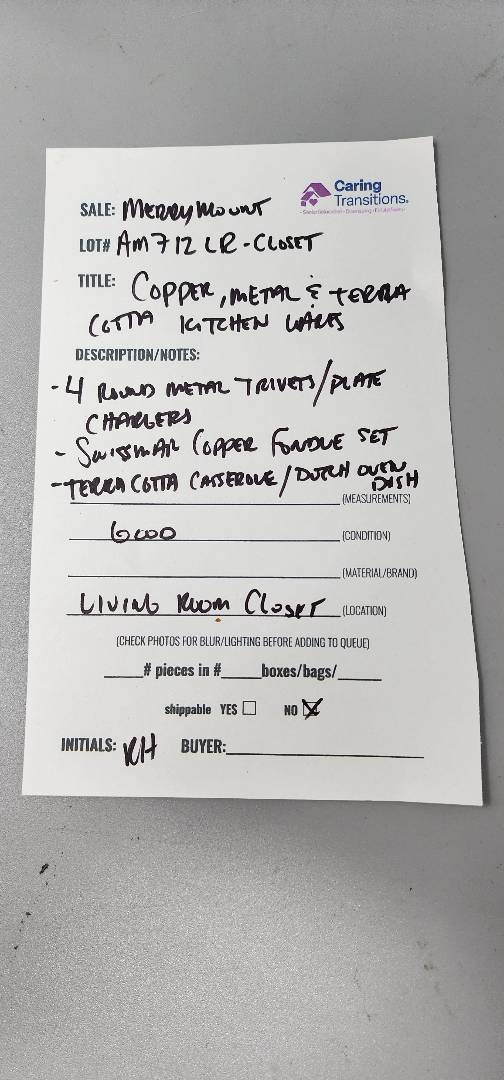 Caring
Transitions.
SALE: MERRYMOUNT
LOT# AM712 LR-CLOSET
TITLE: COPPER, METAL & TERRA
COTTA KITCHEN WARES
DESCRIPTION/NOTES:
- 4 ROUND METAL TRIVETS/PLATE
CHARGERS
- SWISSMAR COPPER FONDUE SET
- TERRA COTTA CASSEROLE/DUTCH OVEN
DISH
(MEASUREMENTS)
GOOD (CONDITION)
(MATERIAL/BRAND)
LIVING ROOM CLOSET (LOCATION)
(CHECK PHOTOS FOR BLUR/LIGHTING BEFORE ADDING TO QUEUE)
# pieces in # boxes/bags/
shippable YES NO
INITIALS: KH BUYER: